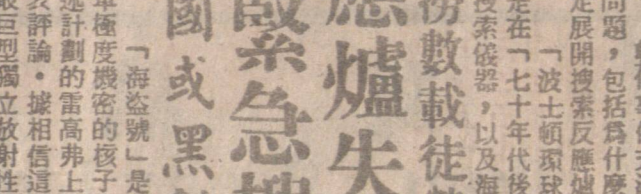 問題，包括爲什麼
展開搜索反應爐
「波士頓環球
走在「七十年代後
搜索儀器，以及海
數載徒
應爐失
緊急搜
國或黑
「海盜號」是
年極度機密的核子
述計劃的雷高弗上
表評論。據相信這
最巨型獨立放射性